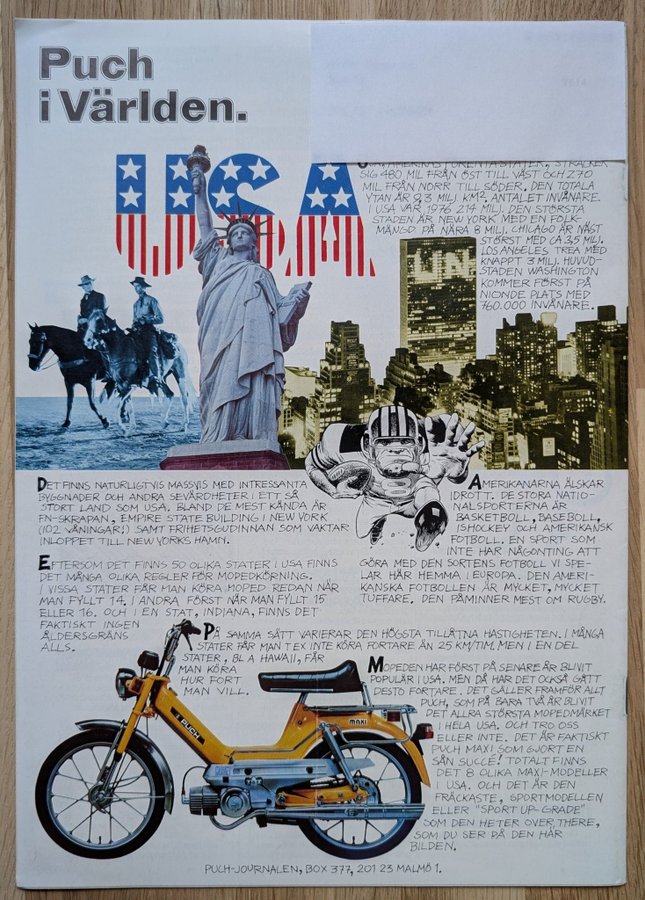 Puch
i Världen.
USA
SIG 480 MIL FRÅN ÖST TILL VÄST OCH 270
MIL FRÅN NORR TILL SÖDER. DEN TOTALA
YTAN ÄR 9,3 MILJ. KM². ANTALET INVÅNARE
I USA VAR 1976 214 MILJ. DEN STÖRSTA
STADEN ÄR NEW YORK MED EN FOLK-
MÄNGD PÅ NÄRA 8 MILJ. CHICAGO ÄR NÄST
STÖRST MED CA 3,5 MILJ.
LOS ANGELES TREA MED
KNAPPT 3 MILJ. HUVUD-
STADEN WASHINGTON
KOMMER FÖRST PÅ
NIONDE PLATS MED
760.000 INVÅNARE.
UN
DET FINNS NATURLIGTVIS MASSVIS MED INTRESSANTA
BYGGNADER OCH ANDRA SEVÄRDHETER I ETT SÅ
STORT LAND SOM USA. BLAND DE MEST KÄNDA ÄR
FN-SKRAPAN, EMPIRE STATE BUILDING I NEW YORK
(102 VÅNINGAR!) SAMT FRIHETSGUDINNAN SOM VAKTAR
INLOPPET TILL NEW YORKS HAMN.
AMERIKANARNA ÄLSKAR
IDROTT. DE STORA NATIO-
NALSPORTERNA ÄR
BASKETBOLL, BASEBOLL,
ISHOCKEY OCH AMERIKANSK
FOTBOLL. EN SPORT SOM
INTE HAR NÅGONTING ATT
GÖRA MED DEN SORTENS FOTBOLL VI SPE-
LAR HÄR HEMMA I EUROPA. DEN AMERI-
KANSKA FOTBOLLEN ÄR MYCKET, MYCKET
TUFFARE. DEN PÅMINNER MEST OM RUGBY.
EFTERSOM DET FINNS 50 OLIKA STATER I USA FINNS
DET MÅNGA OLIKA REGLER FÖR MOPEDKÖRNING.
I VISSA STATER FÅR MAN KÖRA MOPED REDAN NÄR
MAN FYLLT 14. I ANDRA FÖRST NÄR MAN FYLLT 15
ELLER 16. OCH I EN STAT, INDIANA, FINNS DET
FAKTISKT INGEN
ÅLDERSGRÄNS
ALLS.
PÅ SAMMA SÄTT VARIERAR DEN HÖGSTA TILLÅTNA HASTIGHETEN. I MÅNGA
STATER FÅR MAN T EX INTE KÖRA FORTARE ÄN 25 KM/TIM, MEN I EN DEL
STATER, BL A HAWAII, FÅR
MAN KÖRA
HUR FORT
MAN VILL.
MOPEDEN HAR FÖRST PÅ SENARE ÅR BLIVIT
POPULÄR I USA. MEN DÅ HAR DET OCKSÅ GÅTT
DESTO FORTARE. DET GÄLLER FRAMFÖR ALLT
PUCH, SOM PÅ BARA TVÅ ÅR BLIVIT
DET ALLRA STÖRSTA MOPEDMÄRKET
I HELA USA. OCH TRO OSS
ELLER INTE. DET ÄR FAKTISKT
PUCH MAXI SOM GJORT EN
SÅN SUCCÉ! TOTALT FINNS
DET 8 OLIKA MAXI-MODELLER
I USA. OCH DET ÄR DEN
FRÄCKASTE, SPORTMODELLEN
ELLER "SPORT UP-GRADE"
SOM DEN HETER OVER THERE,
SOM DU SER PÅ DEN HÄR
BILDEN.
PUCH
MAXI
PUCH-JOURNALEN, BOX 377, 201 23 MALMÖ 1.